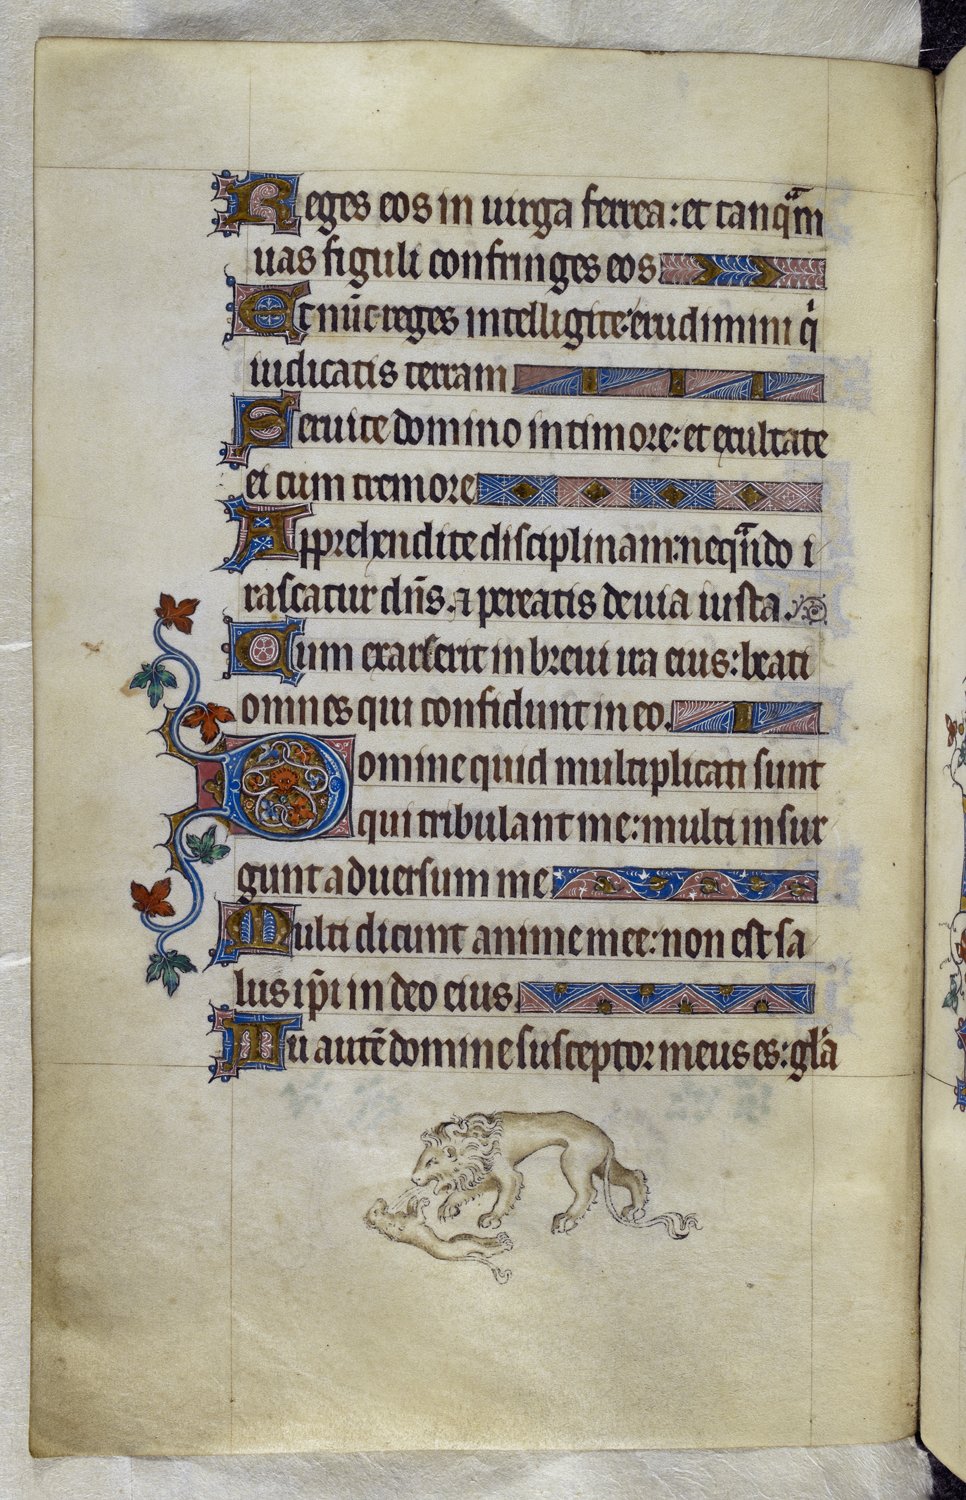 Reges eos in uirga ferrea: et tanqᵃm
uas figuli confringes eos
Et nūc reges intelligite: erudimini qⁱ
iudicatis terram
Seruite domino in timore: et exultate
ei cum tremore
Apprehendite disciplinam: neqᵃndo i
rascatur dn̄s. ⁊ pereatis de uia iusta.
Cum exarserit in breui ira eius: beati
omnes qui confidunt in eo.
Domine quid multiplicati sunt
qui tribulant me: multi insur
gunt aduersum me
Multi dicunt anime mee: non est sa
lus ip̄i in deo eius.
Tu autē domine susceptor meus es: gl̓a